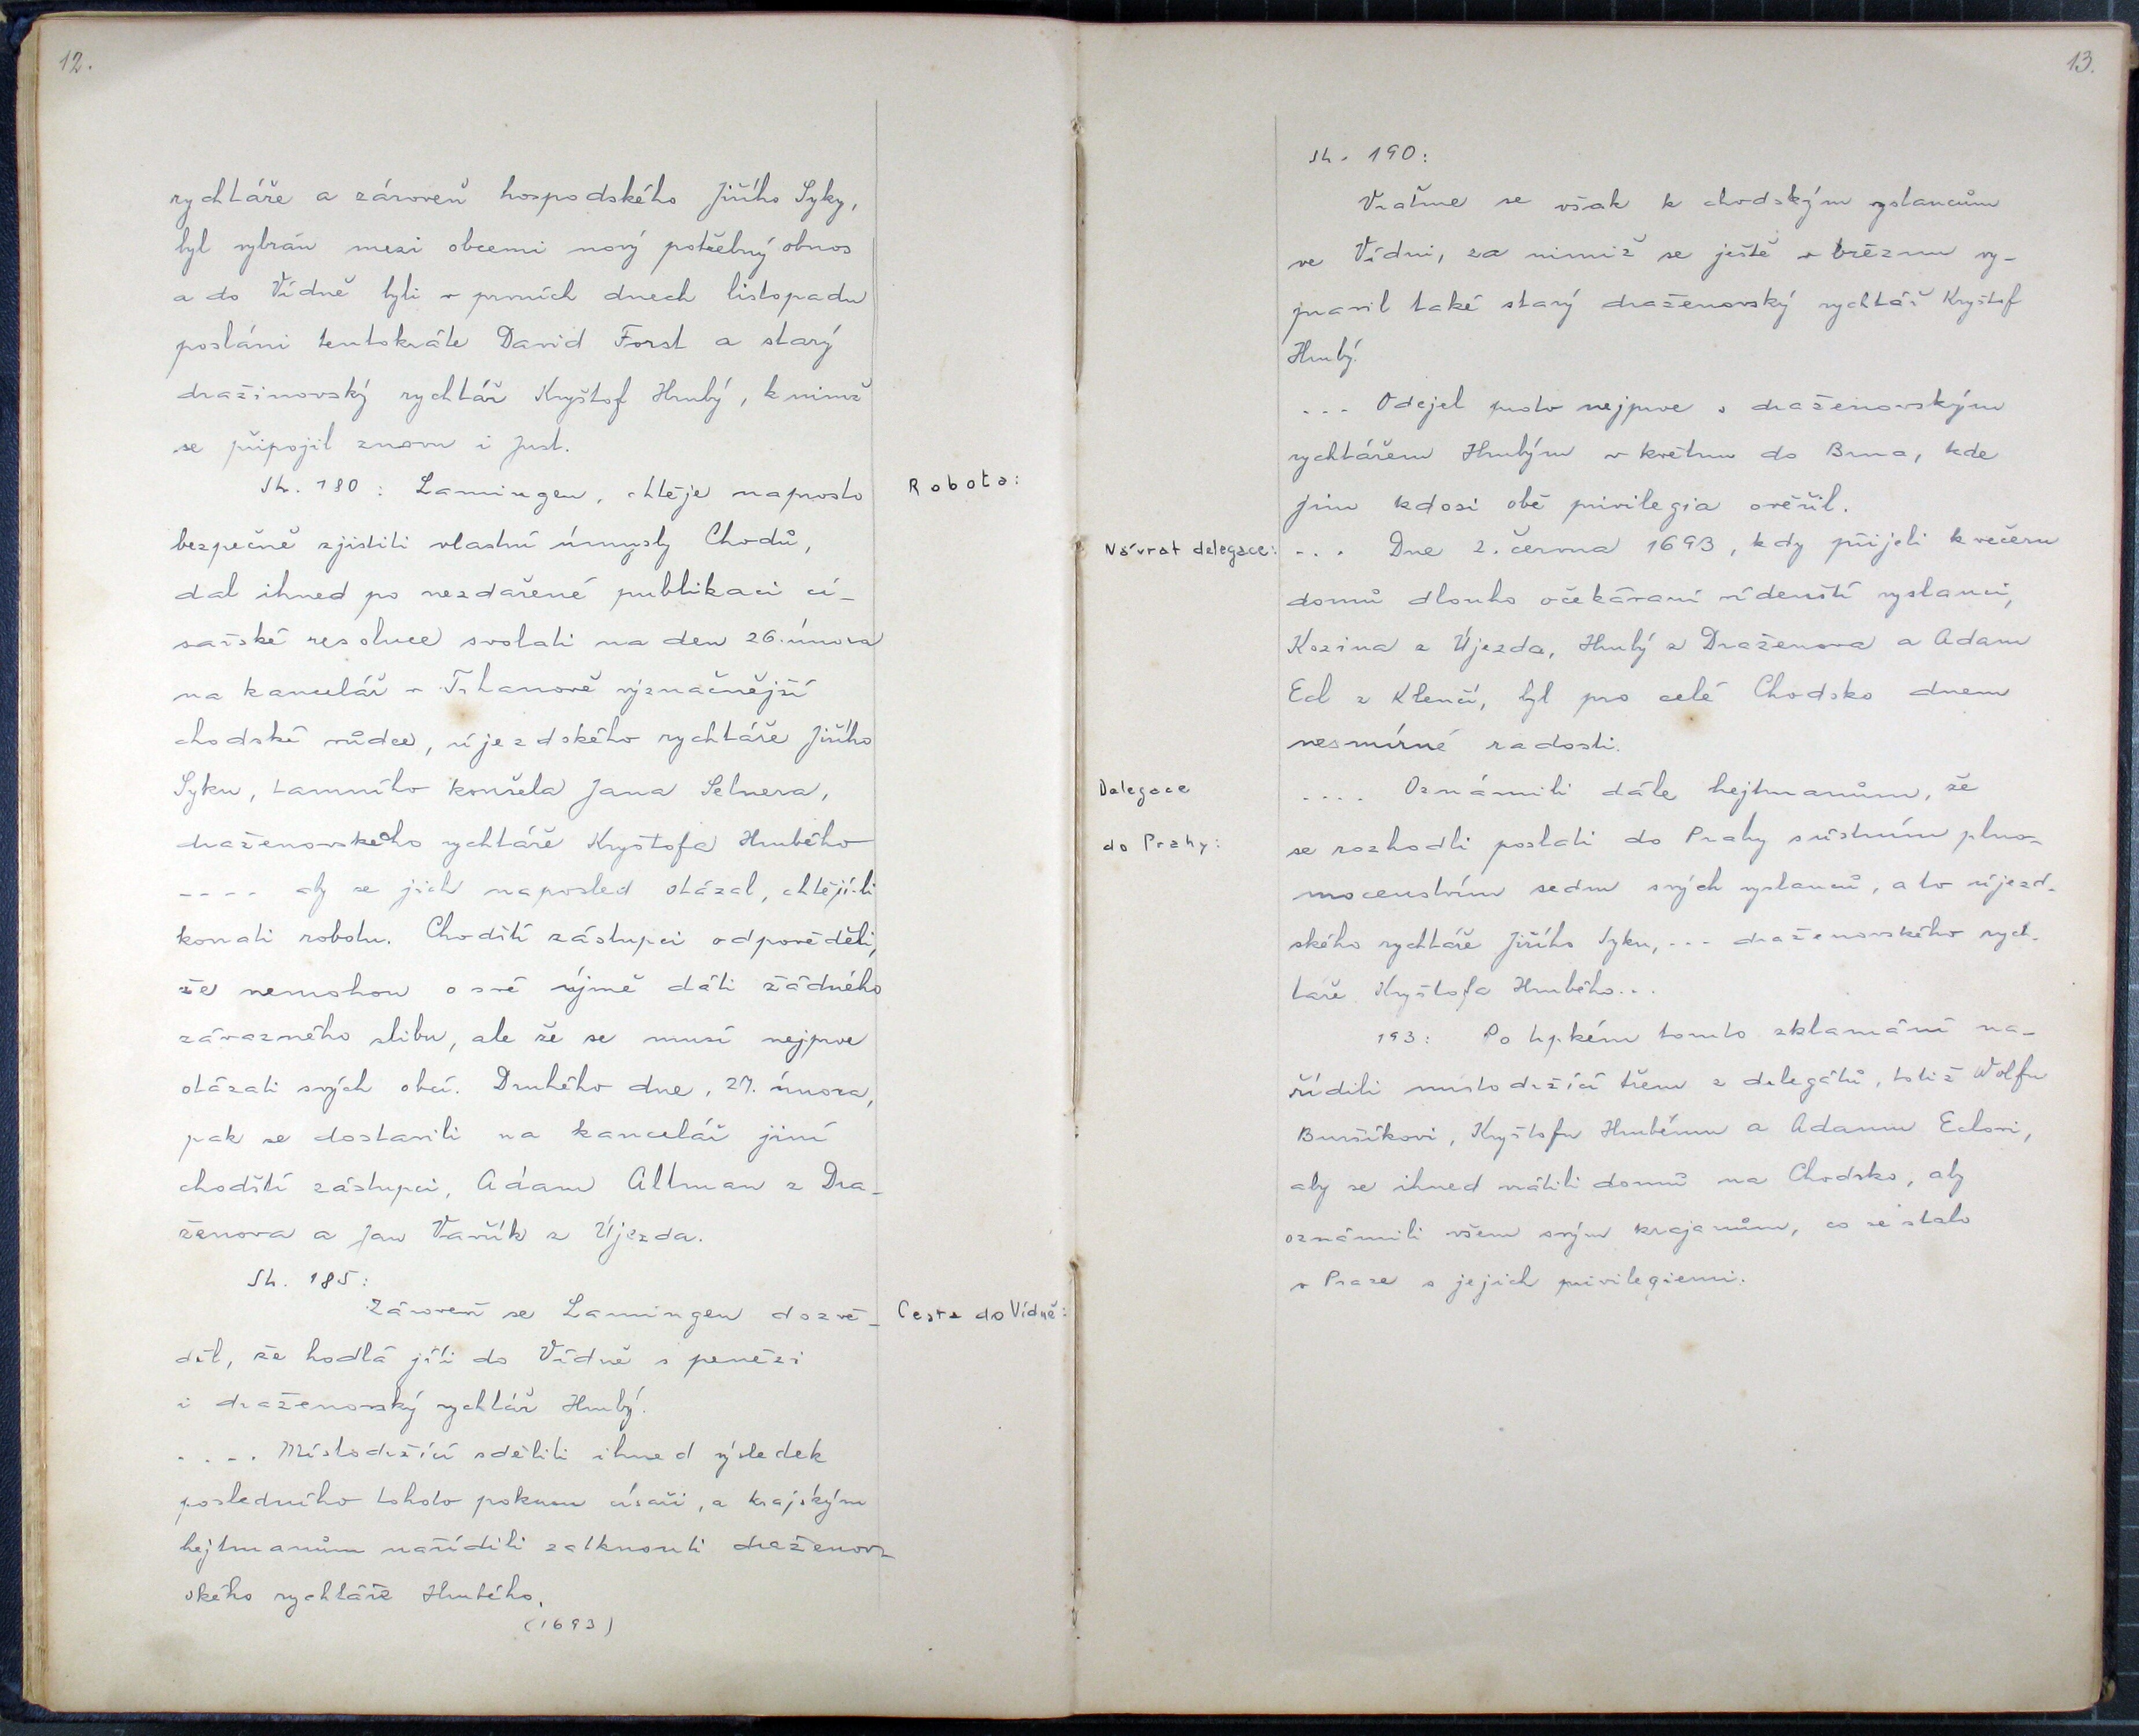 12.
rychtáře a zároveň hospodského Jiřího Syky,
byl vybrán mezi obcemi nový potřebný obnos
a do Vídně byli v prvních dnech listopadu
posláni tentokráte David Forst a starý
dražinovský rychtář Kryštof Hrubý, k nimž
se připojil znovu i Just.
Str. 180: Lamingen, chtěje naprosto
Robota:
bezpečně zjistiti vlastní úmysly Chodů,
dal ihned po nezdařené publikaci cí-
sařské resoluce svolati na den 26. února
na kancelář v Trhanově význačnější
chodské vůdce, újezdského rychtáře Jiřího
Syku, tamního konšela Jana Pelnera,
draženovského rychtáře Kryštofa Hrubého
---- aby se jich naposled otázal, chtějí-li
konati robotu. Chodští zástupci odpověděli,
že nemohou o své újmě dáti žádného
závazného slibu, ale že se musí nejprve
otázati svých obcí. Druhého dne, 27. února,
pak se dostavili na kancelář jiní
chodští zástupci, Adam Altman z Dra-
ženova a Jan Vavřík z Újezda.
Str. 185:
Zároveň se Lamingen dozvě-
Cesta do Vídně:
děl, že hodlá jíti do Vídně s penězi
i draženovský rychtář Hrubý.
.... Místodržící sdělili ihned výsledek
posledního tohoto pokusu císaři, a krajským
hejtmanům nařídili zatknouti draženov-
ského rychtáře Hrubého.
(1693)
13.
Str. 190:
Vraťme se však k chodským vyslancům
ve Vídni, za nimiž se ještě v březnu vy-
pravil také starý draženovský rychtář Kryštof
Hrubý.
... Odejel proto nejprve s draženovským
rychtářem Hrubým v květnu do Brna, kde
jim kdosi obě privilegia ověřil.
Návrat delegace:
... Dne 2. června 1693, kdy přijeli k večeru
domů dlouho očekávaní vídenští vyslanci,
Kozina z Újezda, Hrubý z Draženova a Adam
Ecl z Klenčí, byl pro celé Chodsko dnem
nesmírné radosti.
Delegace
do Prahy:
.... Oznámili dále hejtmanům, že
se rozhodli poslati do Prahy s ústním plno-
mocenstvím sedm svých vyslanců, a to újezd-
ského rychtáře Jiřího Syku, --- draženovského rych-
táře Kryštofa Hrubého...
193: Po trpkém tomto zklamání na-
řídili místodržící třem z delegátů, totiž Wolfu
Buršíkovi, Kryštofu Hrubému a Adamu Eclovi,
aby se ihned vrátili domů na Chodsko, aby
oznámili všem svým krajanům, co se stalo
v Praze s jejich privilegiemi.